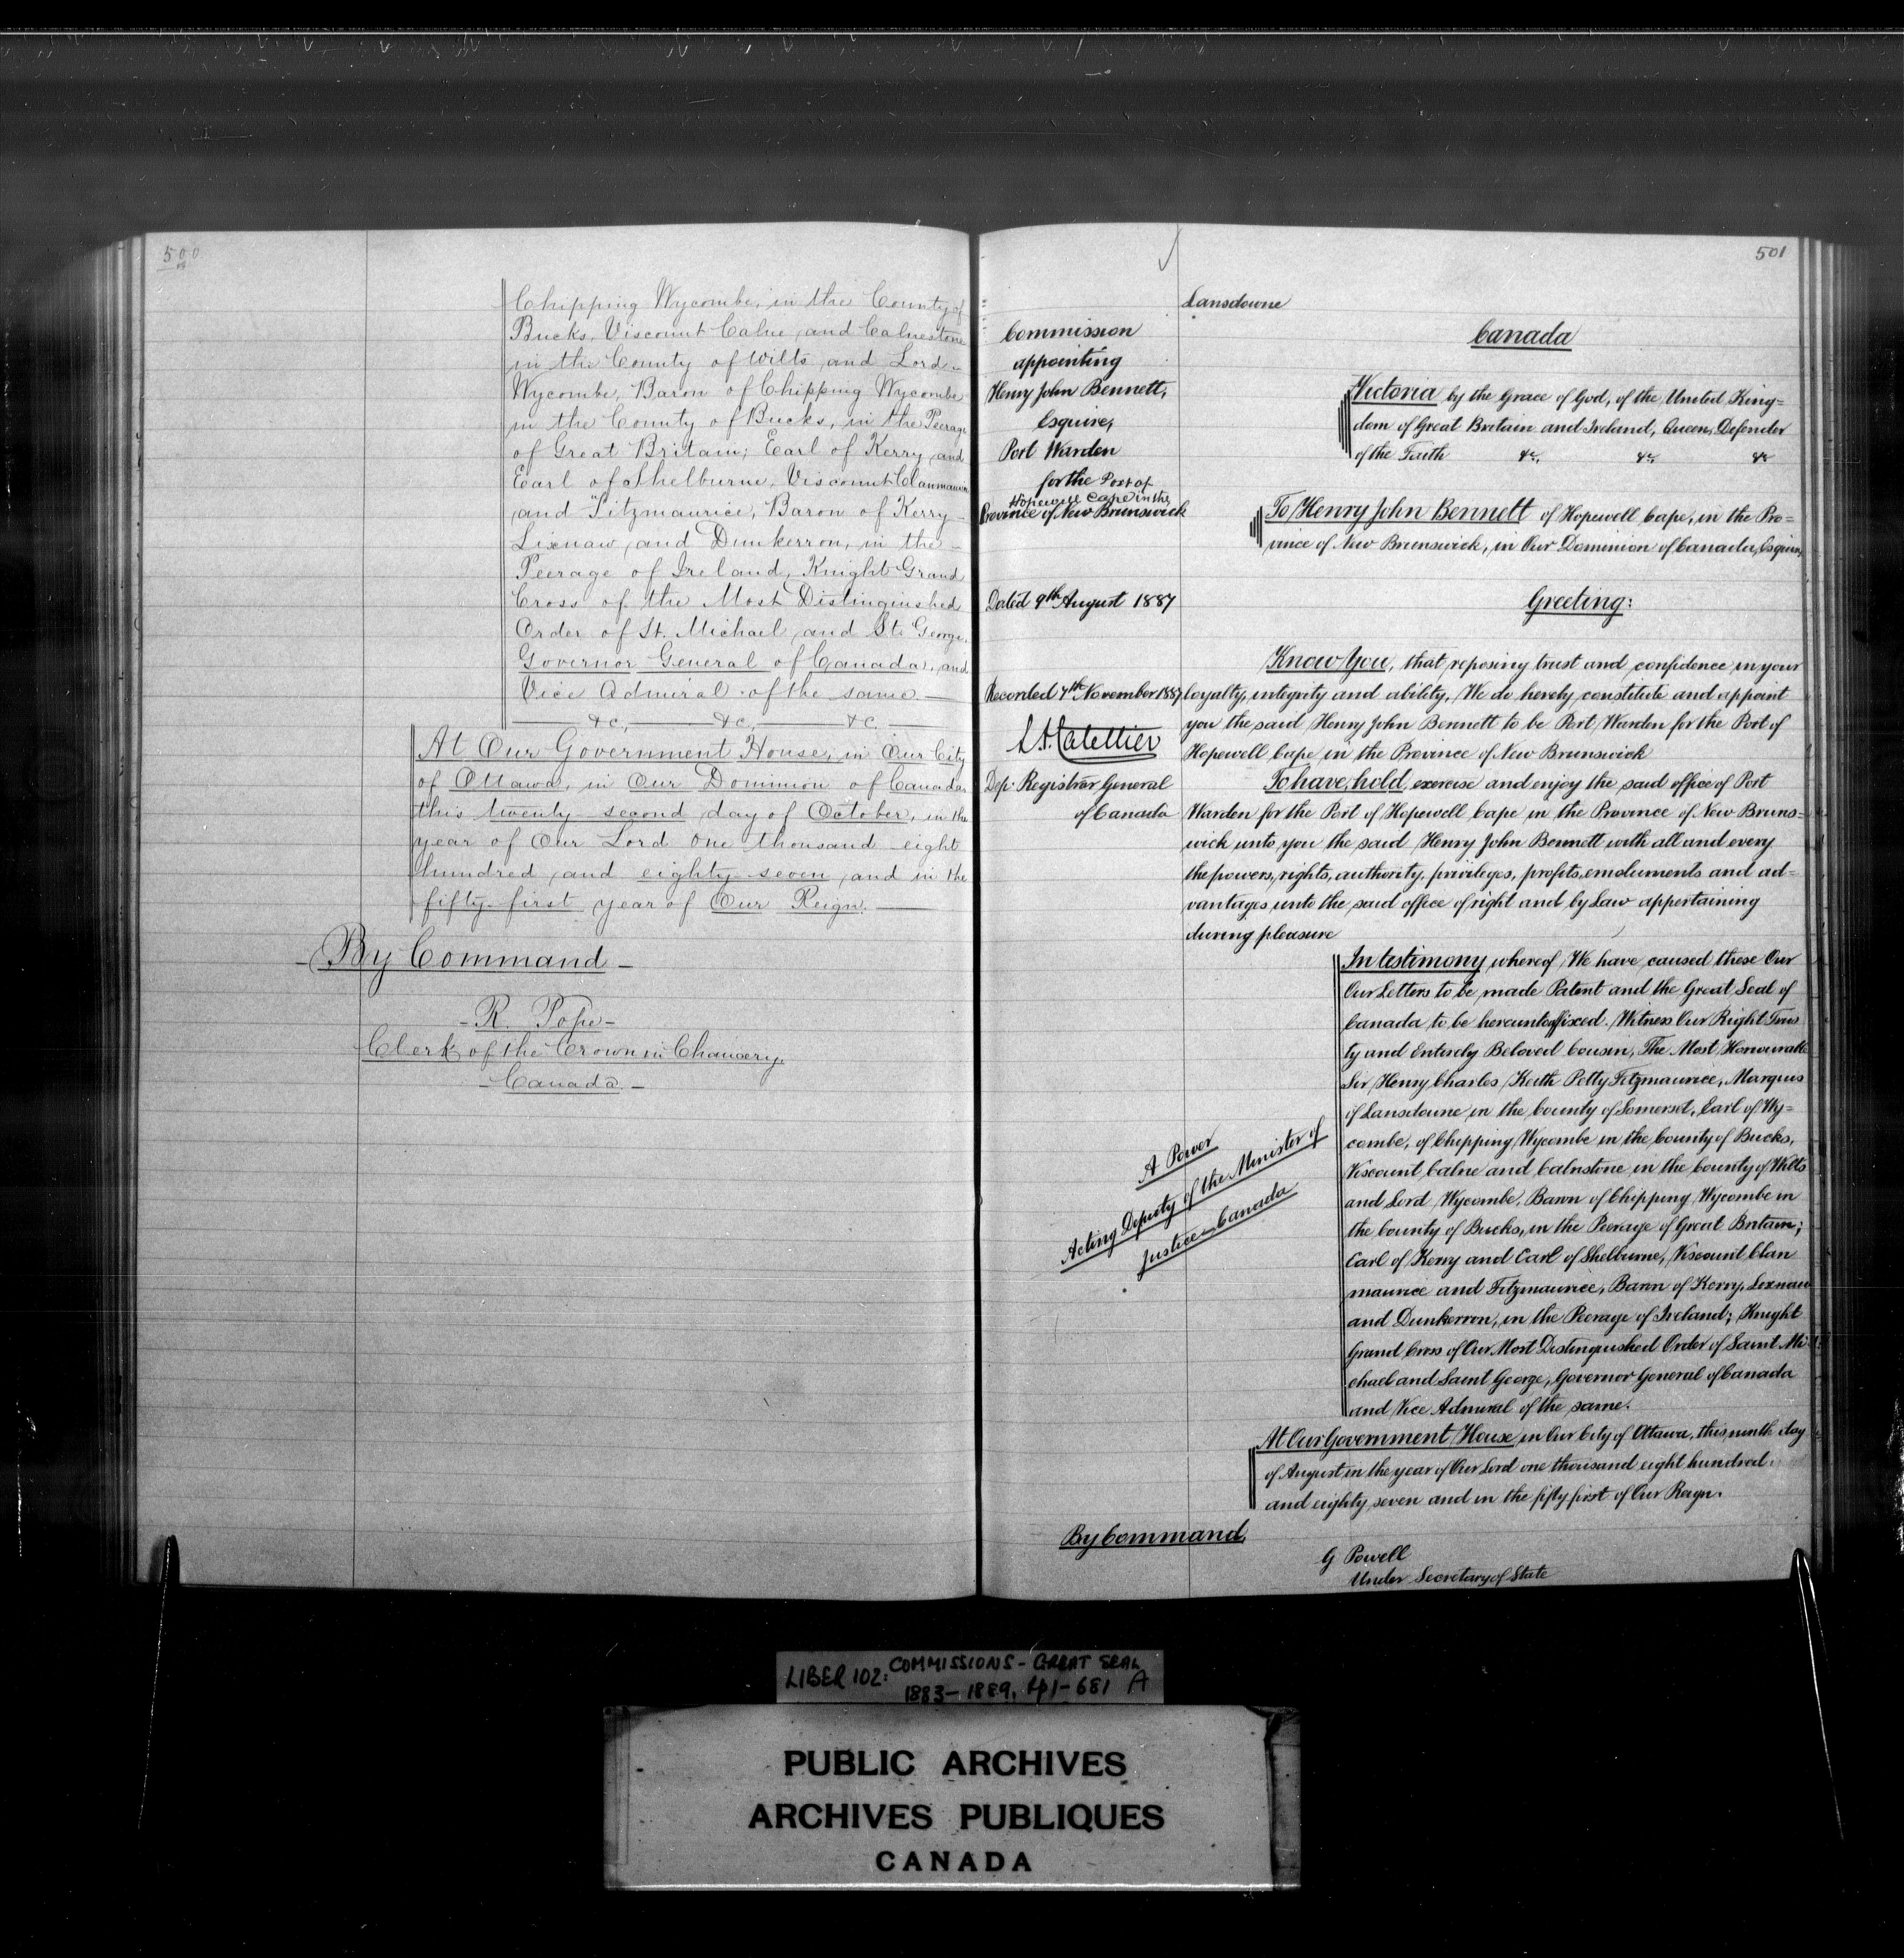 500
Chipping Wycombe, in the County of
Bucks, Viscount Calne, and Calnestone
in the County of Wilts and Lord
Wycombe, Baron of Chipping Wycombe
in the County of Bucks, in the Peerage
of Great Britain; Earl of Kerry and
Earl of Shelburne, Viscount Clanmaurice
and Fitzmaurice, Baron of Kerry
Lixnaw, and Dunkerron, in the
Peerage of Ireland, Knight Grand
Cross of the Most Distinguished
Order of St. Michael and St. George,
Governor General of Canada, and
Vice Admiral of the same
&c, &c, &c.
At Our Government House, in Our City
of Ottawa, in Our Dominion of Canada
this twenty-second day of October, in the
year of Our Lord one thousand eight
hundred and eighty-seven and in the
fifty-first year of Our Reign.
By Command
R. Pope
Clerk of the Crown in Chancery
Canada
501
Commission
appointing
Henry John Bennett,
Esquire,
Port Warden
for the Port of
Hopewell Cape in the
Province of New Brunswick
Dated 9th August 1887
Recorded 7th November 1887
L A Catellier
Dep. Registrar General
of Canada
Lansdowne
Canada
Victoria by the Grace of God, of the United King=
dom of Great Britain and Ireland, Queen, Defender
of the Faith &c, &c, &c
To Henry John Bennett of Hopewell Cape, in the Pro=
vince of New Brunswick, in Our Dominion of Canada, Esquire,
Greeting:
Know You, that reposing trust and confidence in your
loyalty, integrity and ability, We do hereby constitute and appoint
you the said Henry John Bennett to be Port Warden for the Port of
Hopewell Cape in the Province of New Brunswick
To have, hold, exercise and enjoy the said office of Port
Warden for the Port of Hopewell Cape in the Province of New Bruns=
wick unto you the said Henry John Bennett with all and every
the powers, rights, authority, privileges, profits, emoluments and ad=
vantages unto the said office of right and by Law appertaining
during pleasure
In testimony whereof, We have caused these Our
Our Letters to be made Patent and the Great Seal of
Canada to be hereunto affixed. Witness Our Right Trus
ty and Entirely Beloved Cousin, The Most Honourable
Sir Henry Charles Keith Petty Fitzmaurice, Marquis
of Lansdowne in the County of Somerset, Earl of Wy=
combe, of Chipping Wycombe in the County of Bucks,
Viscount Calne and Calnstone in the County of Wilts
and Lord Wycombe, Baron of Chipping Wycombe in
the County of Bucks, in the Peerage of Great Britain;
Earl of Kerry and Earl of Shelburne, Viscount Clan
maurice and Fitzmaurice, Baron of Kerry, Lexnaw
and Dunkerron, in the Peerage of Ireland; Knight
Grand Cross of Our Most Distinguished Order of Saint Mi
chael and Saint George, Governor General of Canada
and Vice Admiral of the same.
A Power
Acting Deputy of the Minister of
Justice Canada
At Our Government House, in Our City of Ottawa, this ninth day
of August in the year of Our Lord one thousand eight hundred
and eighty seven and in the fifty first of Our Reign.
By Command,
G Powell
Under Secretary of State
LIBER 102: COMMISSIONS - GREAT SEAL
1883-1889, pp1-681 A
PUBLIC ARCHIVES
ARCHIVES PUBLIQUES
CANADA